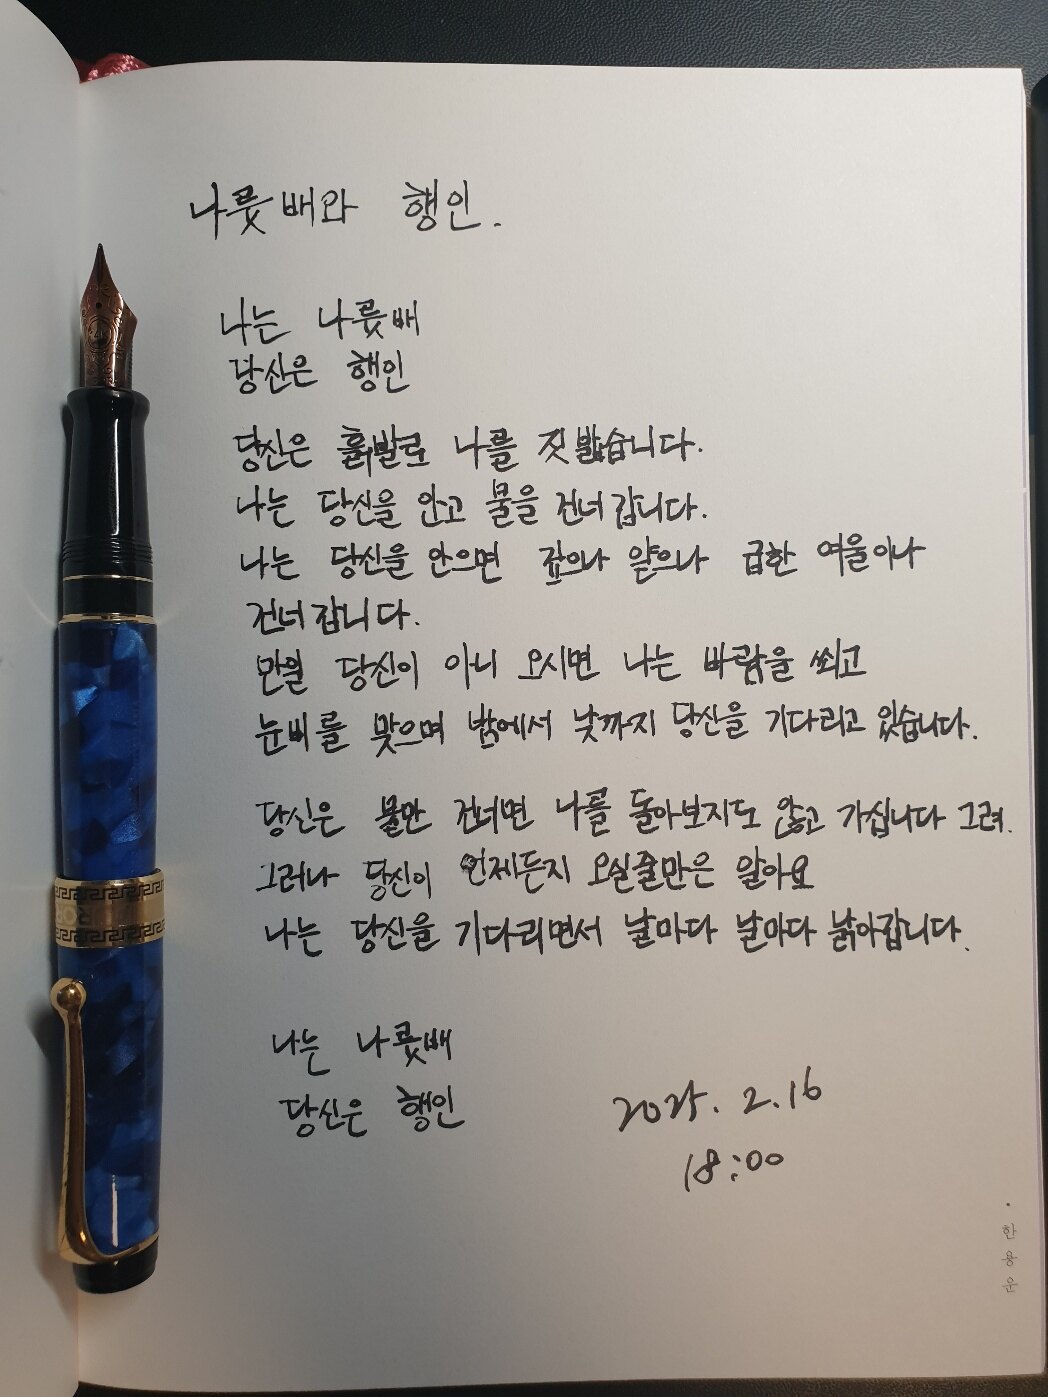 나룻배와 행인.
나는 나룻배
당신은 행인
당신은 흙발로 나를 짓밟습니다.
나는 당신을 안고 물을 건너갑니다.
나는 당신을 안으면 깊으나 얕으나 급한 여울이나
건너갑니다.
만일 당신이 아니 오시면 나는 바람을 쐬고
눈비를 맞으며 밤에서 낮까지 당신을 기다리고 있습니다.
당신은 물만 건너면 나를 돌아보지도 않고 가십니다 그려.
그러나 당신이 언제든지 오실줄만은 알아요
나는 당신을 기다리면서 날마다 날마다 낡아갑니다.
나는 나룻배
당신은 행인
2025. 2.16
18:00
·한용운